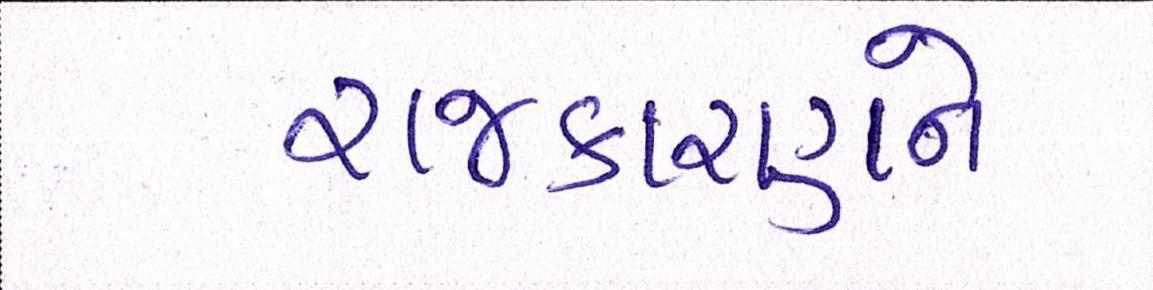 રાજકારણને